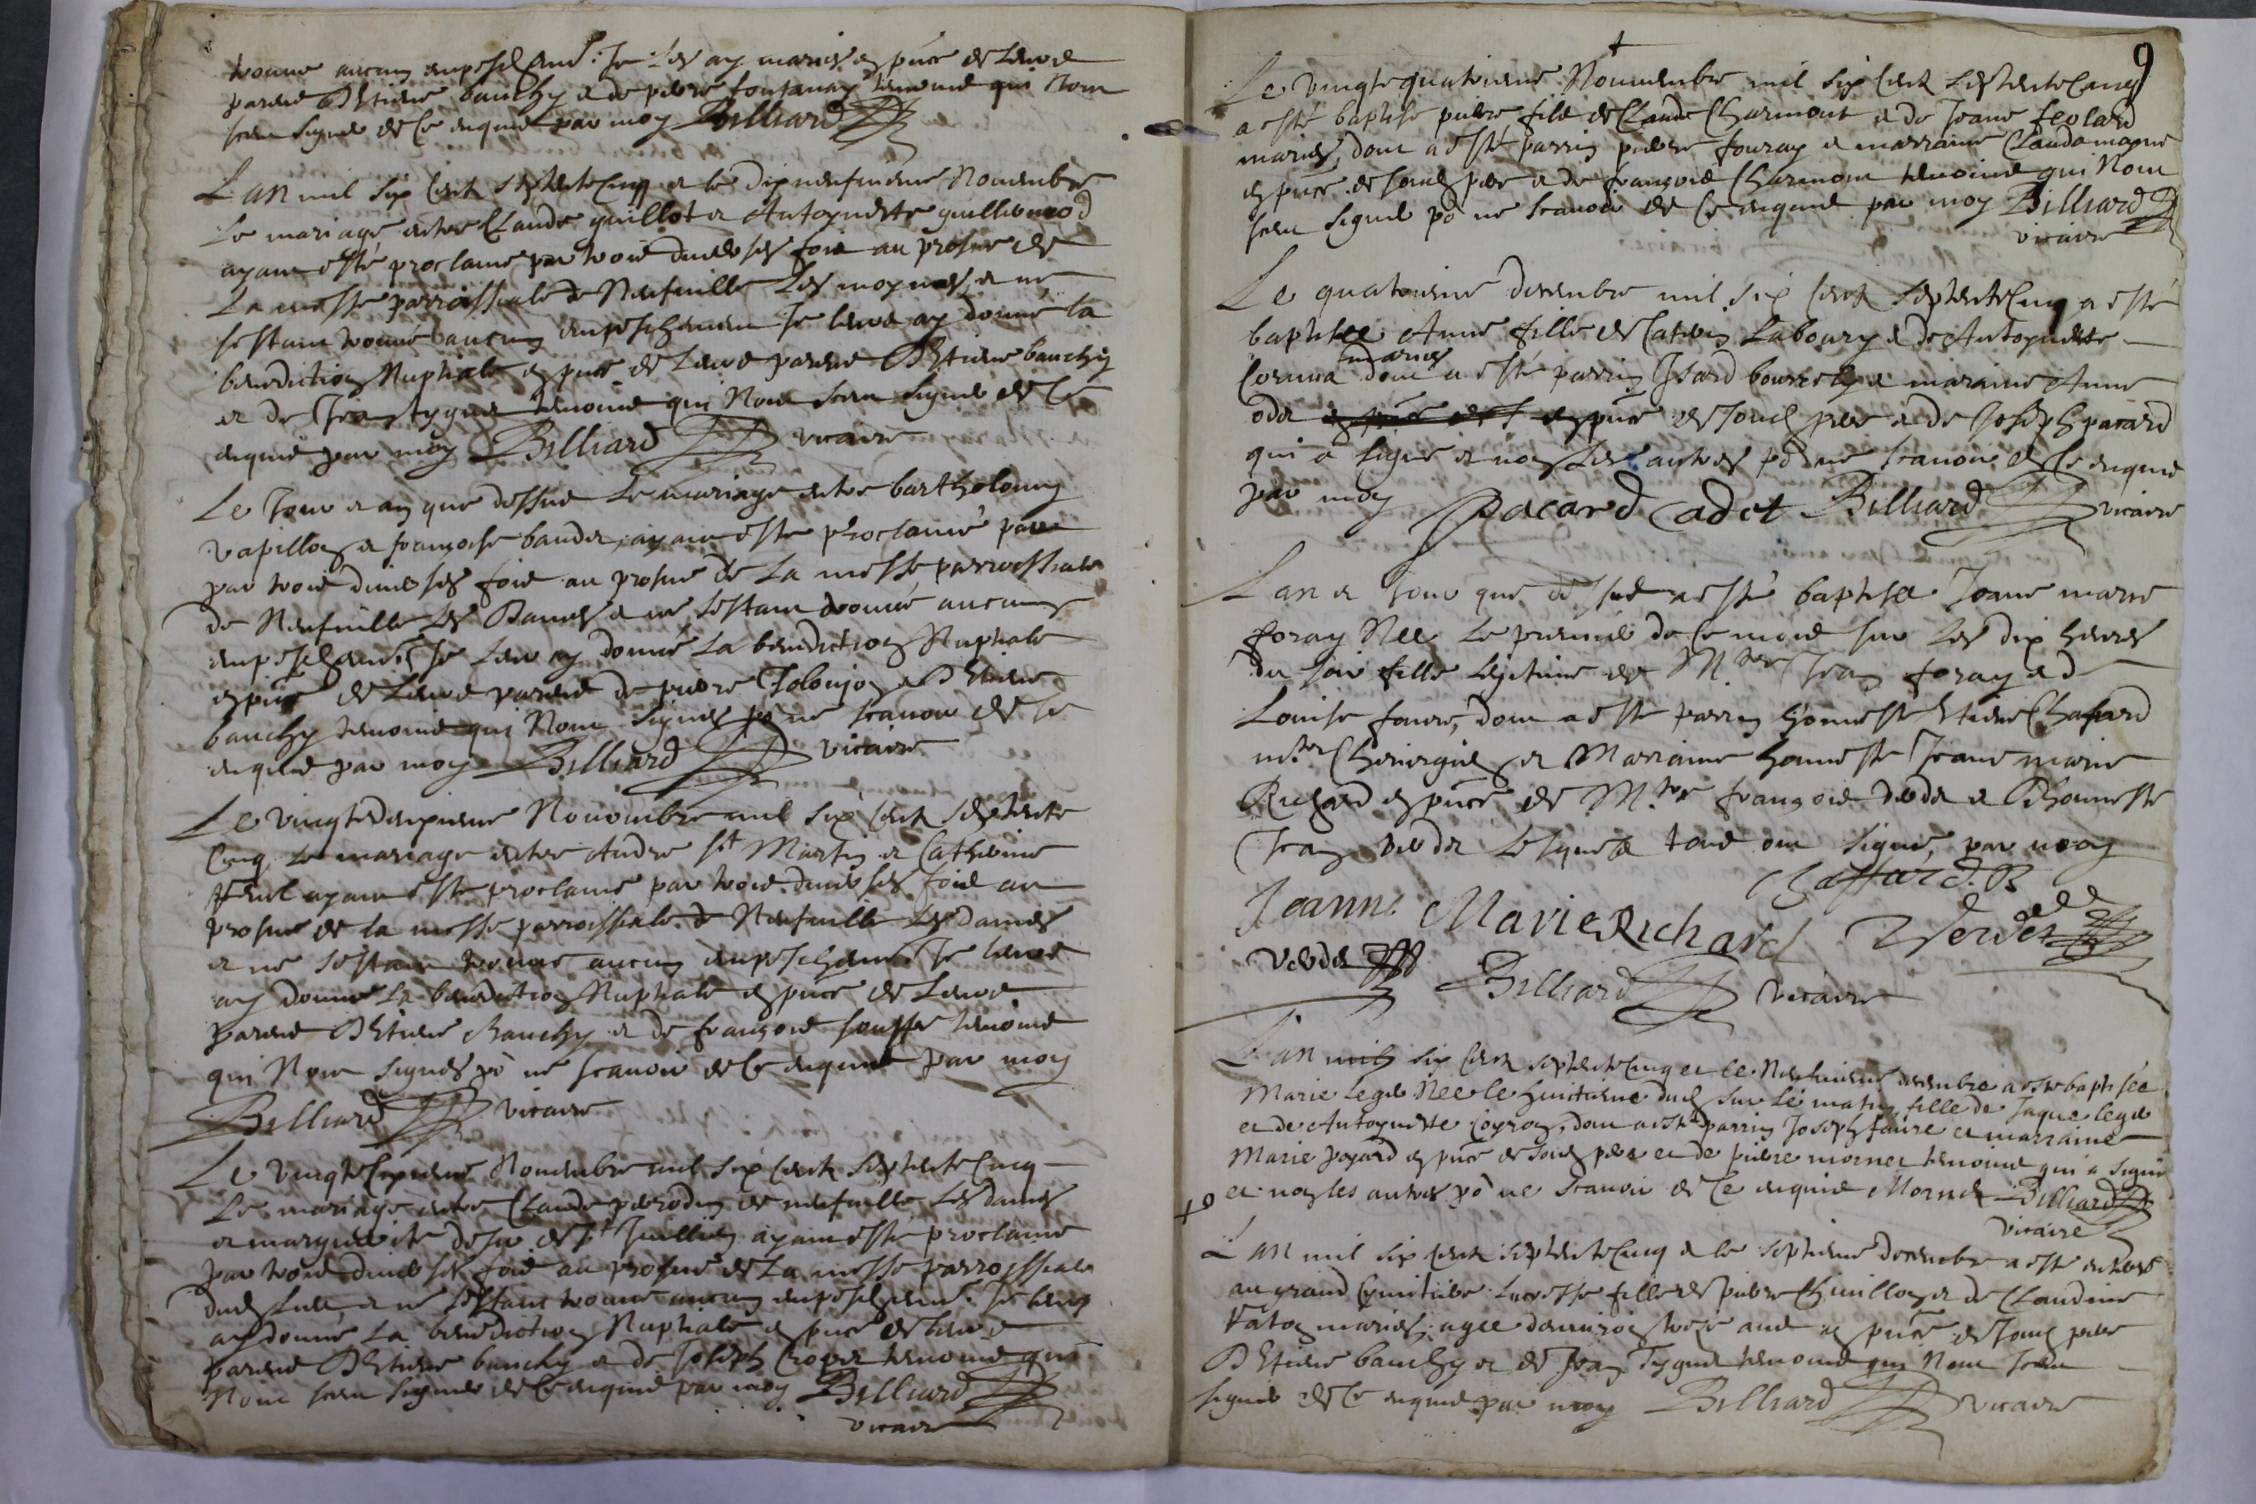 trouve aucun empeschemt. Je les ay mariés en pnce de leurs
parens d'Estiene bauchy et de pierre fontanay temoins qui n'ont
sceu signer de ce enquis par moy Billiard
L'an mil six cent septente cinq et le dixneufvieme Novembre
le mariage entre Claude guillot et Antoynette guilliermod
ayant esté proclamé par trois diverses fois au prosne de
la messe parroissiale de Neufville les moynes et ne
s'estant trouvé aucun empeschement je leurs ay donné la
benediction Nuptiale en pnce de leurs parens d'Estiene bauchy
et de Jean tygnet temoins qui n'ont sceu signer de ce
enquis par moy Billiard vicaire
Le Jour et an que dessus le mariage entre bartholomy
vapillon et françoise baudet ayant esté proclamé par
par trois diverses fois au prosne de la messe parroissiale
de Neufville les Dames et ne s'estant trouvé aucun
empeschemt je leur ay donné la benediction Nuptiale
en pnce de leurs parens de pierre Joloujon et d'Estiene
bauchy temoins qui n'ont signés po ne scavoir de ce
enquis par moy Billiard vicaire
Le vingtedeuxieme Novembre mil six cent septente
cinq le mariage entre Andre st Martin et Catherine
ayant esté proclamé par trois diverses fois au
prosne de la messe parroissiale de Neufville les dames
et ne s'estant trouvé aucun empeschemt je leurs
ay donné la benediction Nuptiale en pnce de leurs
parens d'Estiene bauchy et de françois temoins
qui n'ont signés po ne scavoir de ce enquis par moy
Billiard vicaire
Le vingtseptieme Novembre mil six cent septente cinq
le mariage entre Claude perrodin de neufville les dames
et marguerite de st Jullien ayant esté proclamé
par trois diverses fois au prosne de la messe parroissiale
dud lieu et ne s'estant trouvé aucun empeschemt je leurs
ay donné la benediction Nuptiale en pnce de leurs
parens d'Estiene bauchy et de Joseph temoins qui
n'ont sceu signer de ce enquis par moy Billiard
vicaire
9
Le vingtequatrieme Novembre mil six cent septente cinq
a esté baptisé pierre fils de Claude Charmont et de Jeane
mariés, dont a esté parrin pierre fouray et marraine Clauda
en pnce de soud pere et de françois Charmont temoins qui n'ont
sceu signer po ne scavoir de ce enquis par moy Billiard
vicaire
Le quatrieme decembre mil six cent septente cinq a esté
baptisee Anne fille de Catherin Laboury et de Antoynette
mariés
dont a esté parrin Isard et maraine Anne
odet en pnce de soud pere et de Joseph pacard
qui a signé et non les autres po ne scavoir de ce enquis
par moy Pacard Cadet Billiard vicaire
L'an et Jour que dessus a esté baptisee Jeane marie
foray Nee le premier de ce mois sur les dix heures
du soir fille legitime de Mtre Jean foray et de
Louise favre, dont a esté parrin honneste Estiene Chafard
mtre Chirurgien et Marraine honneste Jeane marie
Richard en pnce de Mtre françois verdet et d'honneste
Jean verdet lesquels tous ont signé, par moy
Chaffard
Jeanne Marie Richard Verdet
Verdet Billiard vicaire
L'an mil six cent septente cinq et le Neufvieme decembre a esté baptisée
Marie Leger Nee le huictieme dud sur le matin fille de Jaque leger
et de Antoynette Coyron, dont a esté parrin Joseph favre et marraine
Marie payard en pnce de soud pere et de pierre mornet temoins qui a signé
et non les autres po ne scavoir de ce enquis Mornet Billiard
vicaire
L'an mil six cent septente cinq et le septieme decembre a esté enterré
au grand Cymitiere Lucresse fille de pierre Chivillon et de Claudine
mariés, agee d'environ treze ans en pnce de soud pere
d'Estiene bauchy et de Jean Tygnet temoins qui n'ont sceu
signer de ce enquis par moy Billiard vicaire